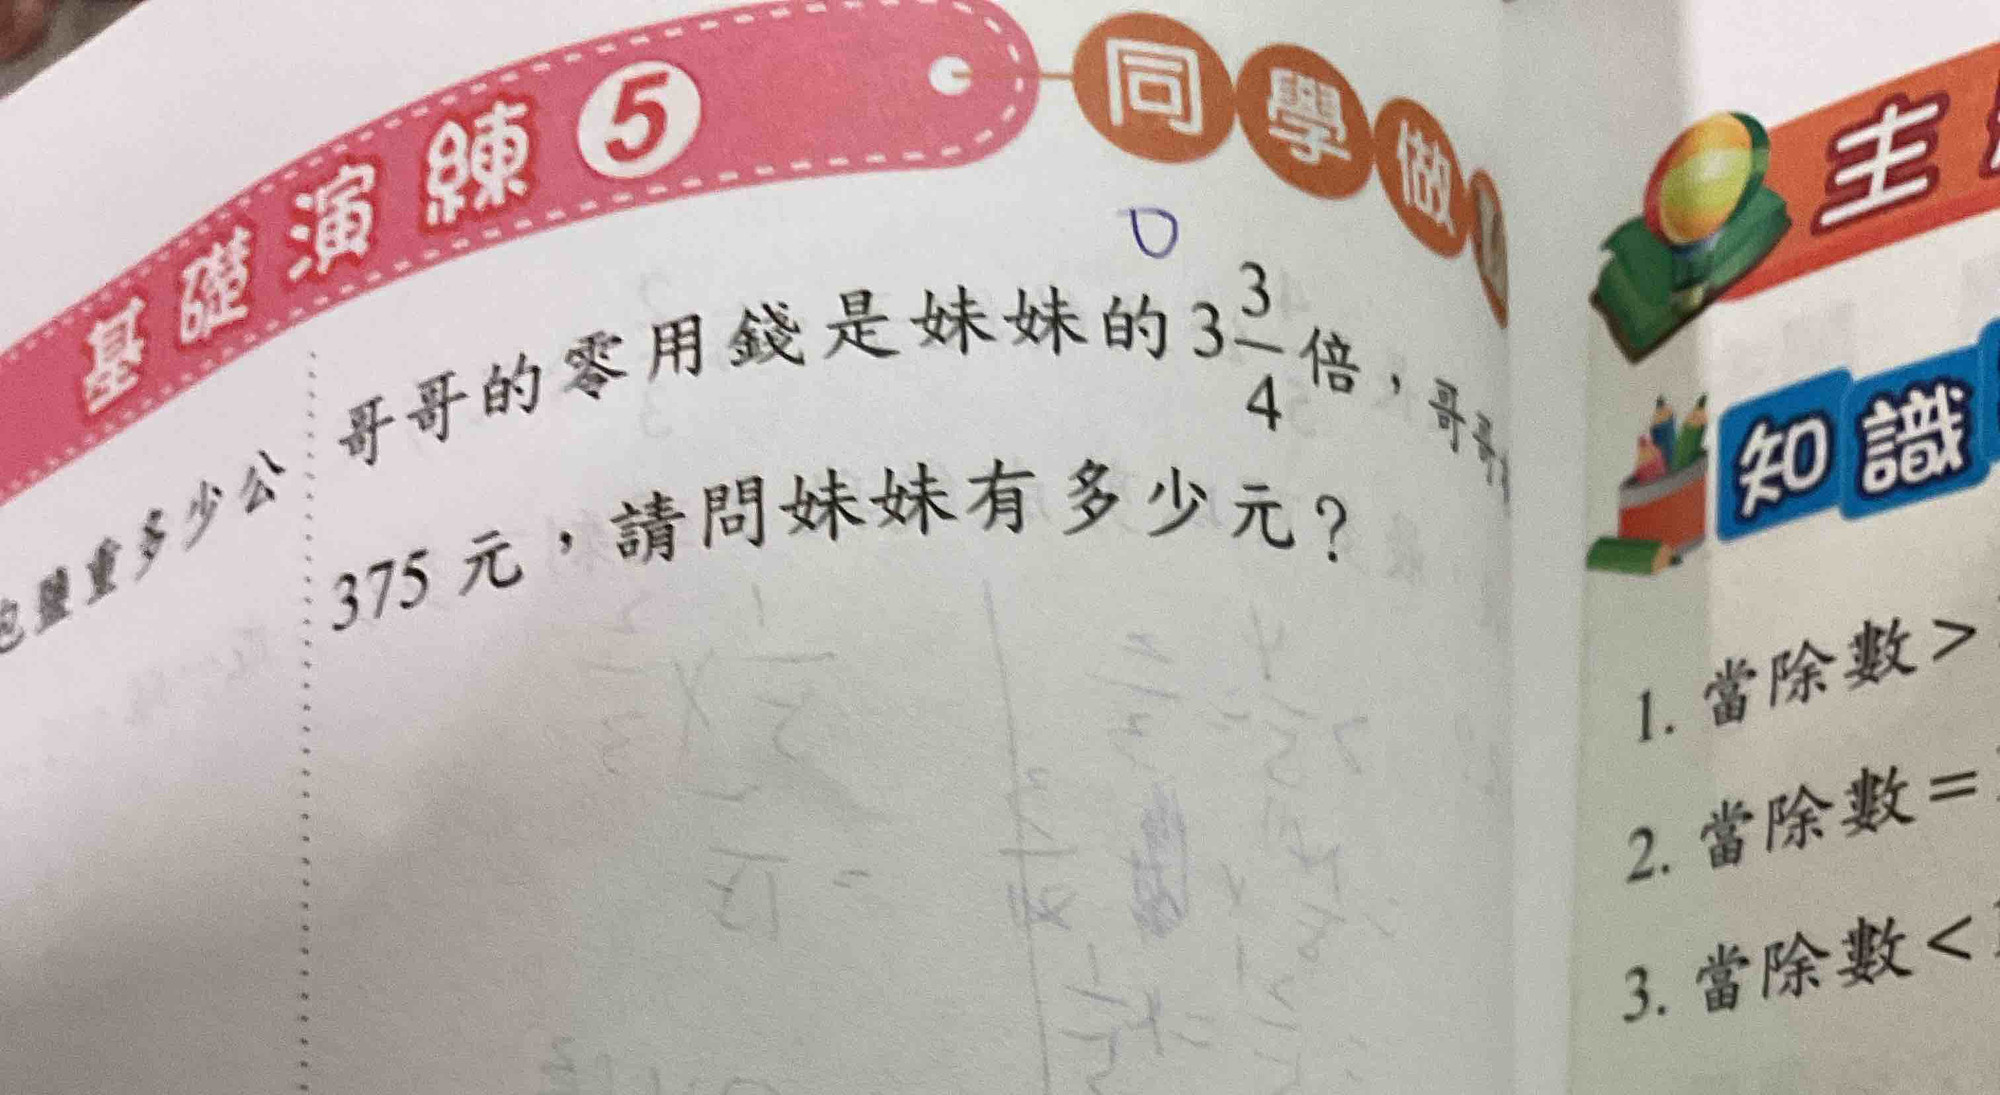 基礎演練5
同學做
哥哥的零用錢是妹妹的3 3/4倍，哥哥
375元，請問妹妹有多少元？
鹽重多少公
主
知識
1. 當除數>
2. 當除數=
3. 當除數<